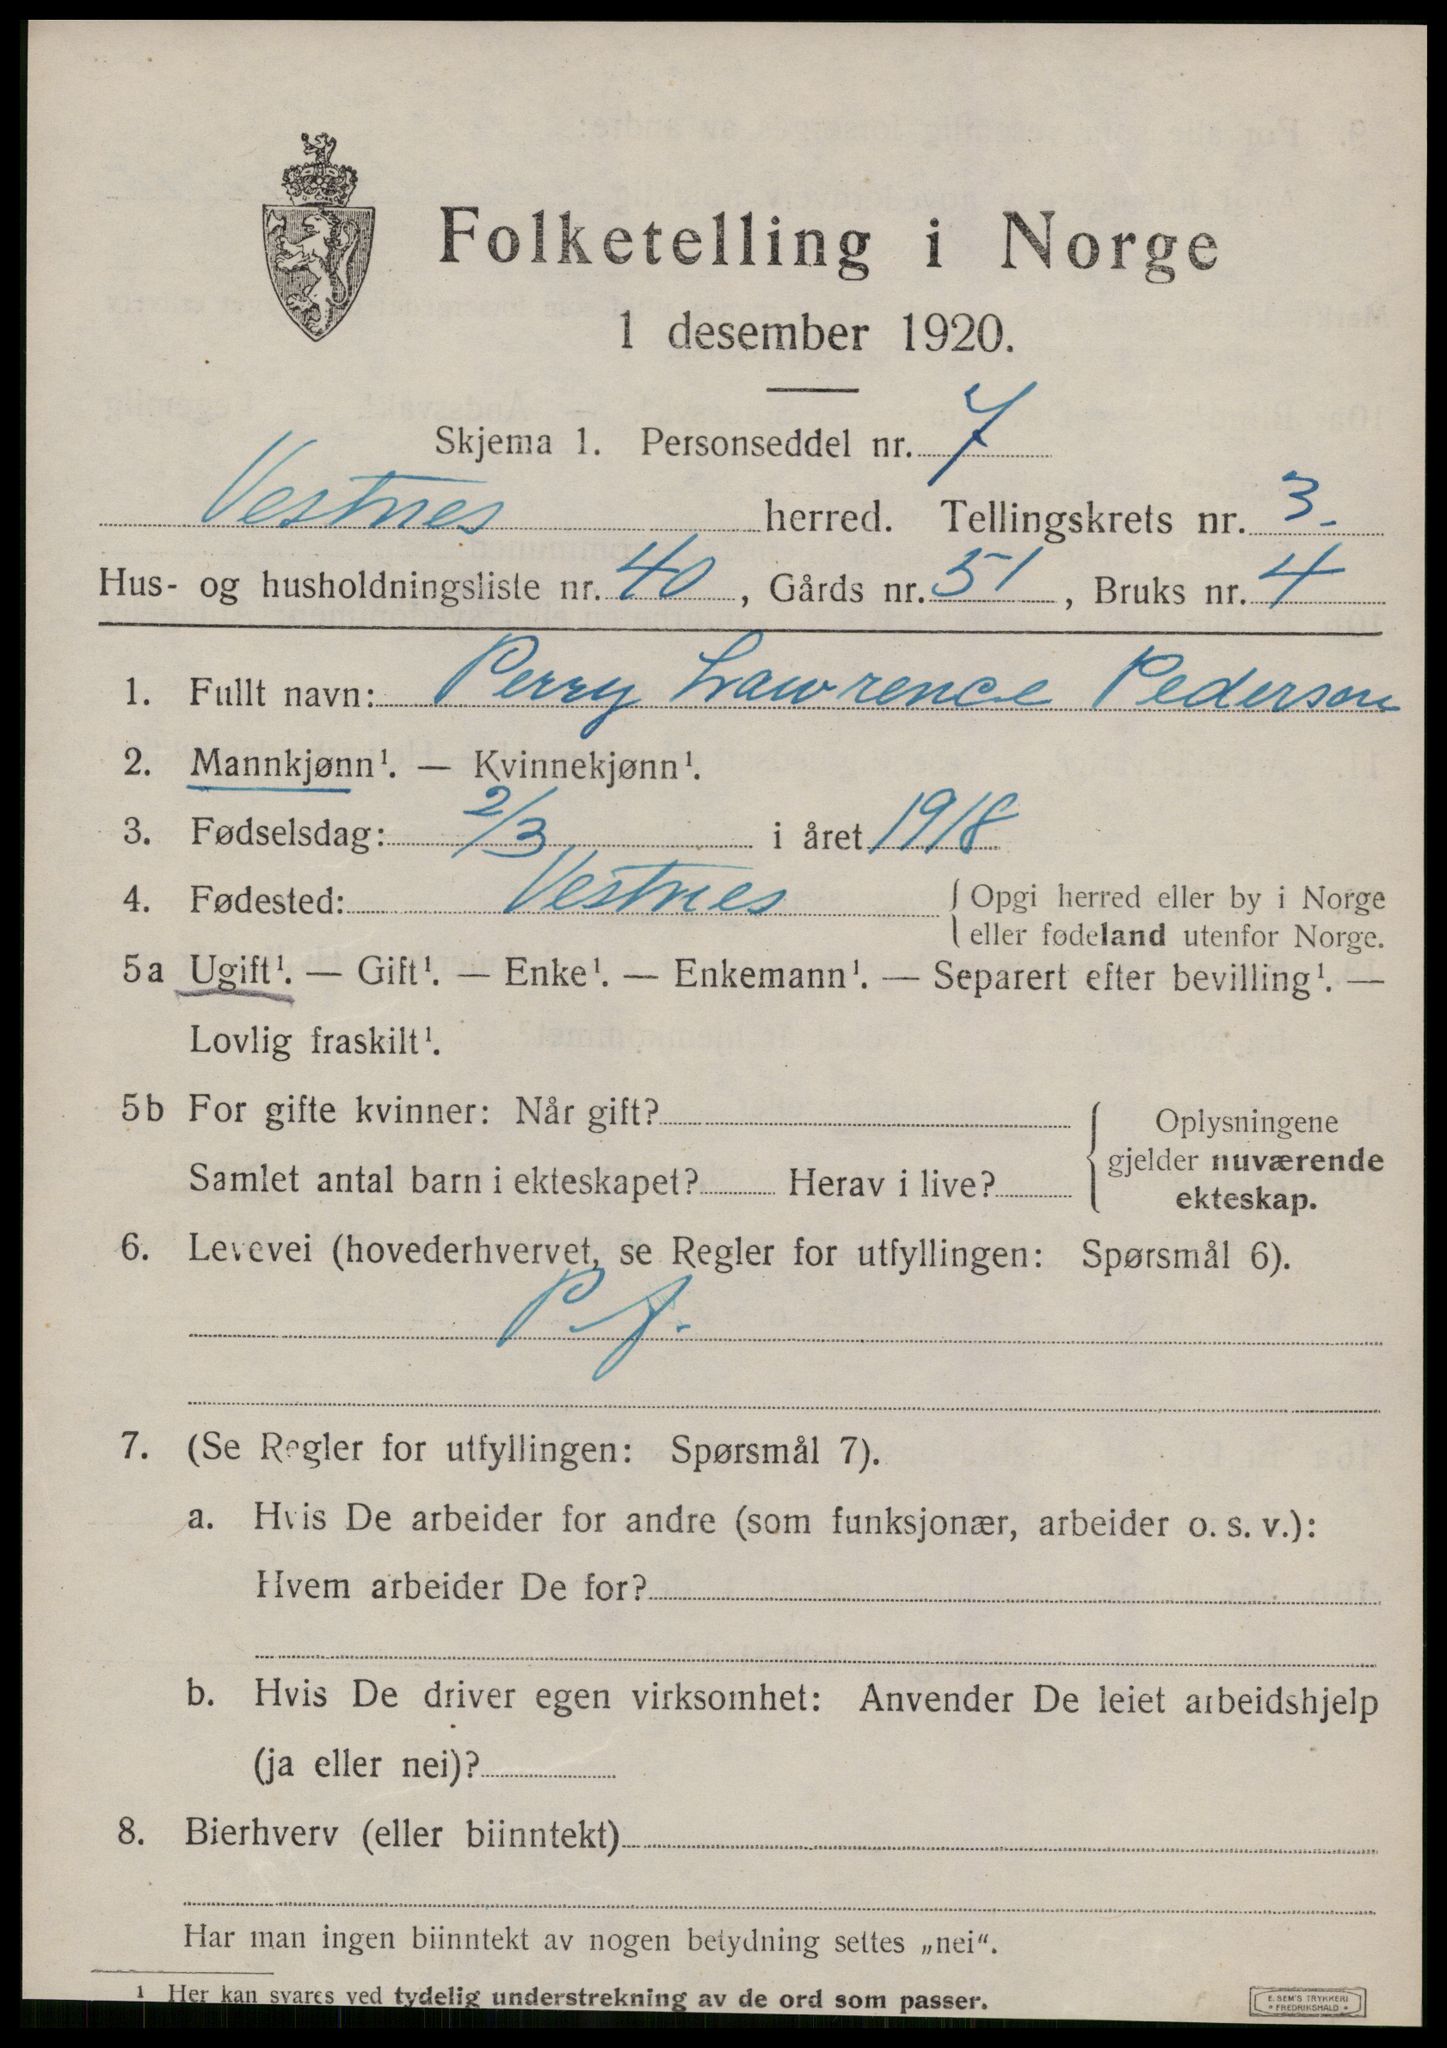 Folketelling i Norge
1 desember 1920.
Skjema 1. Personseddel nr. 7
Vestnes herred. Tellingskrets nr. 3.
Hus- og husholdningsliste nr. 40, Gårds nr. 51, Bruks nr. 4
1. Fullt navn: Perry Lawrence Pederson
2. Mannkjønn¹. — Kvinnekjønn¹.
3. Fødselsdag: 2/3 i året 1918
4. Fødested: Vestnes { Opgi herred eller by i Norge
eller fødeland utenfor Norge.
5a Ugift¹. — Gift¹. — Enke¹. — Enkemann¹. — Separert efter bevilling¹. —
Lovlig fraskilt¹.
5b For gifte kvinner: Når gift? { Oplysningene
gjelder nuværende
Samlet antal barn i ekteskapet? Herav i live?
ekteskap.
6. Levevei (hovederhvervet, se Regler for utfyllingen: Spørsmål 6).
P. f.
7. (Se Regler for utfyllingen: Spørsmål 7).
a. Hvis De arbeider for andre (som funksjonær, arbeider o. s. v.):
Hvem arbeider De for?
b. Hvis De driver egen virksomhet: Anvender De leiet arbeidshjelp
(ja eller nei)?
8. Bierhverv (eller biinntekt)
Har man ingen biinntekt av nogen betydning settes „nei“.
¹ Her kan svares ved tydelig understrekning av de ord som passer.
E. SEM'S TRYKKERI
• FREDRIKSHALD •